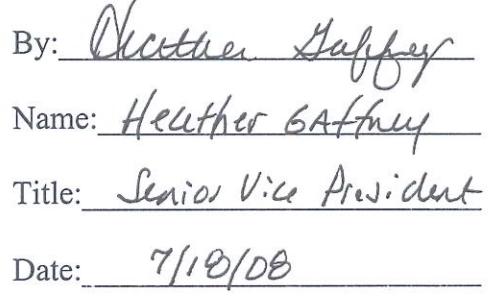 By: Heather Gaffney
Name: Heather Gaffney
Title: Senior Vice President
Date: 7/18/08